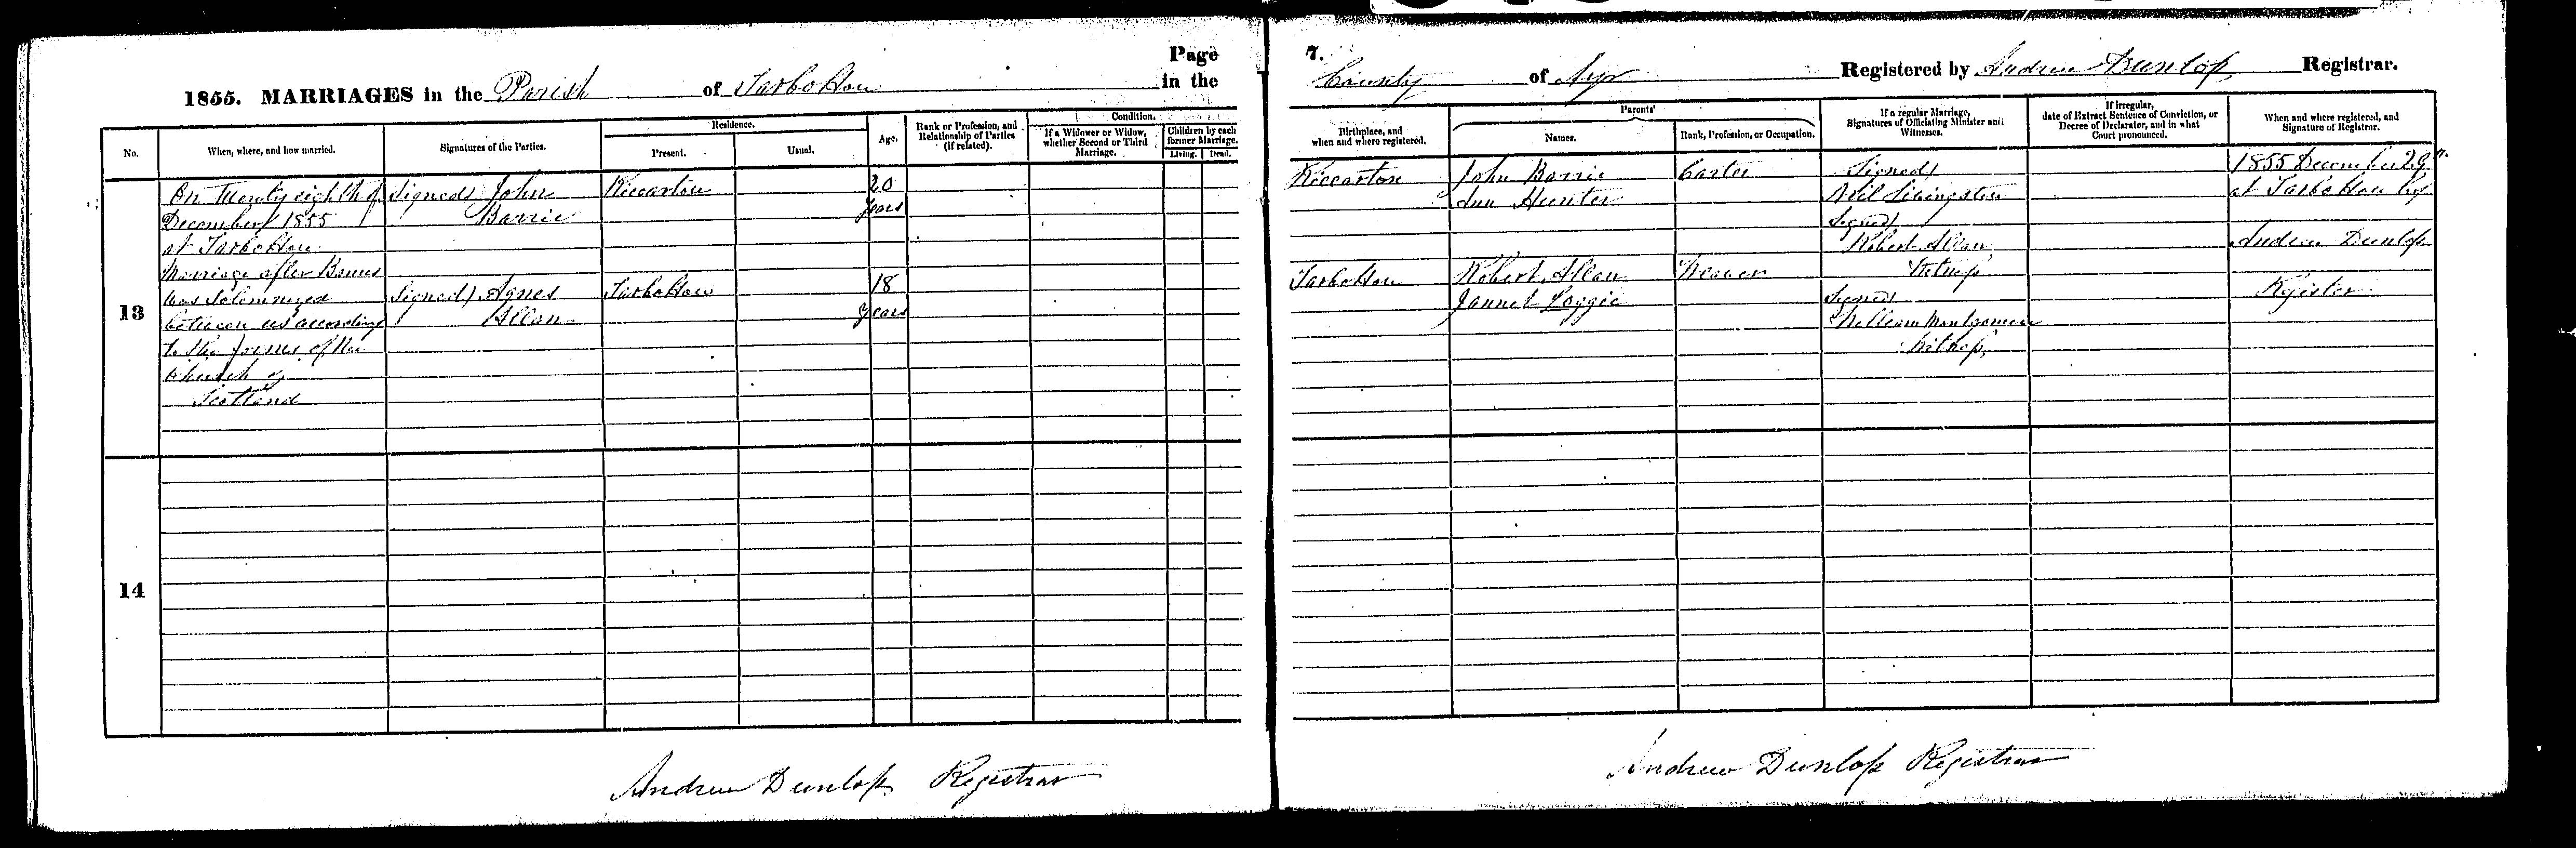 Page 7.
1855. MARRIAGES in the Parish of Tarbolton in the County of Ayr Registered by Andrew Dunlop Registrar.
No.
When, where, and how married.
Signatures of the Parties.
Residence.
Present.
Usual.
Age.
Rank or Profession, and
Relationship of Parties
(if related).
Condition.
If a Widower or Widow,
whether Second or Third
Marriage.
Children by each
former Marriage.
Living. Dead.
Birthplace, and
when and where registered.
Parents'
Names.
Rank, Profession, or Occupation.
If a regular Marriage,
Signatures of Officiating Minister and
Witnesses.
If irregular,
date of Extract Sentence of Conviction, or
Decree of Declarator, and in what
Court pronounced.
When and where registered, and
Signature of Registrar.
13
On Twenty eighth of
December 1855
at Tarbolton
Marriage after Banns
was solemnized
between us according
to the forms of the
Church of
Scotland
Signed) John
Barrie
Signed) Agnes
Allan
Riccarton
Tarbolton
20
years
18
years
Riccarton
Tarbolton
John Barrie
Ann Hunter
Robert Allan
Jannet Loggie
Carter
Weaver
Signed)
Neil Livingston
Signed)
Robert Allan
Witness
Signed)
William Montgomerie
Witness
1855 December 29th
at Tarbolton by
Andrew Dunlop
Register
14
Andrew Dunlop Registrar
Andrew Dunlop Registrar